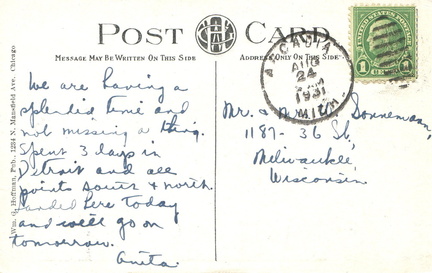 POST CARD
MESSAGE MAY BE WRITTEN ON THIS SIDE
ADDRESS ONLY ON THIS SIDE
We are having a
splendid time and
not missing a thing.
Spent 3 days in
Detroit and all
points south & north.
Landed here today
and will go on
tomorrow.
Anita.
Wm. G. Hoffman, Pub., 1234 N. Mansfield Ave., Chicago
ARCADIA
AUG
24
1931
MICH.
UNITED STATES POSTAGE
1 1
Mr. & Sonnemann,
1187 - 36 St,
Milwaukee,
Wisconsin